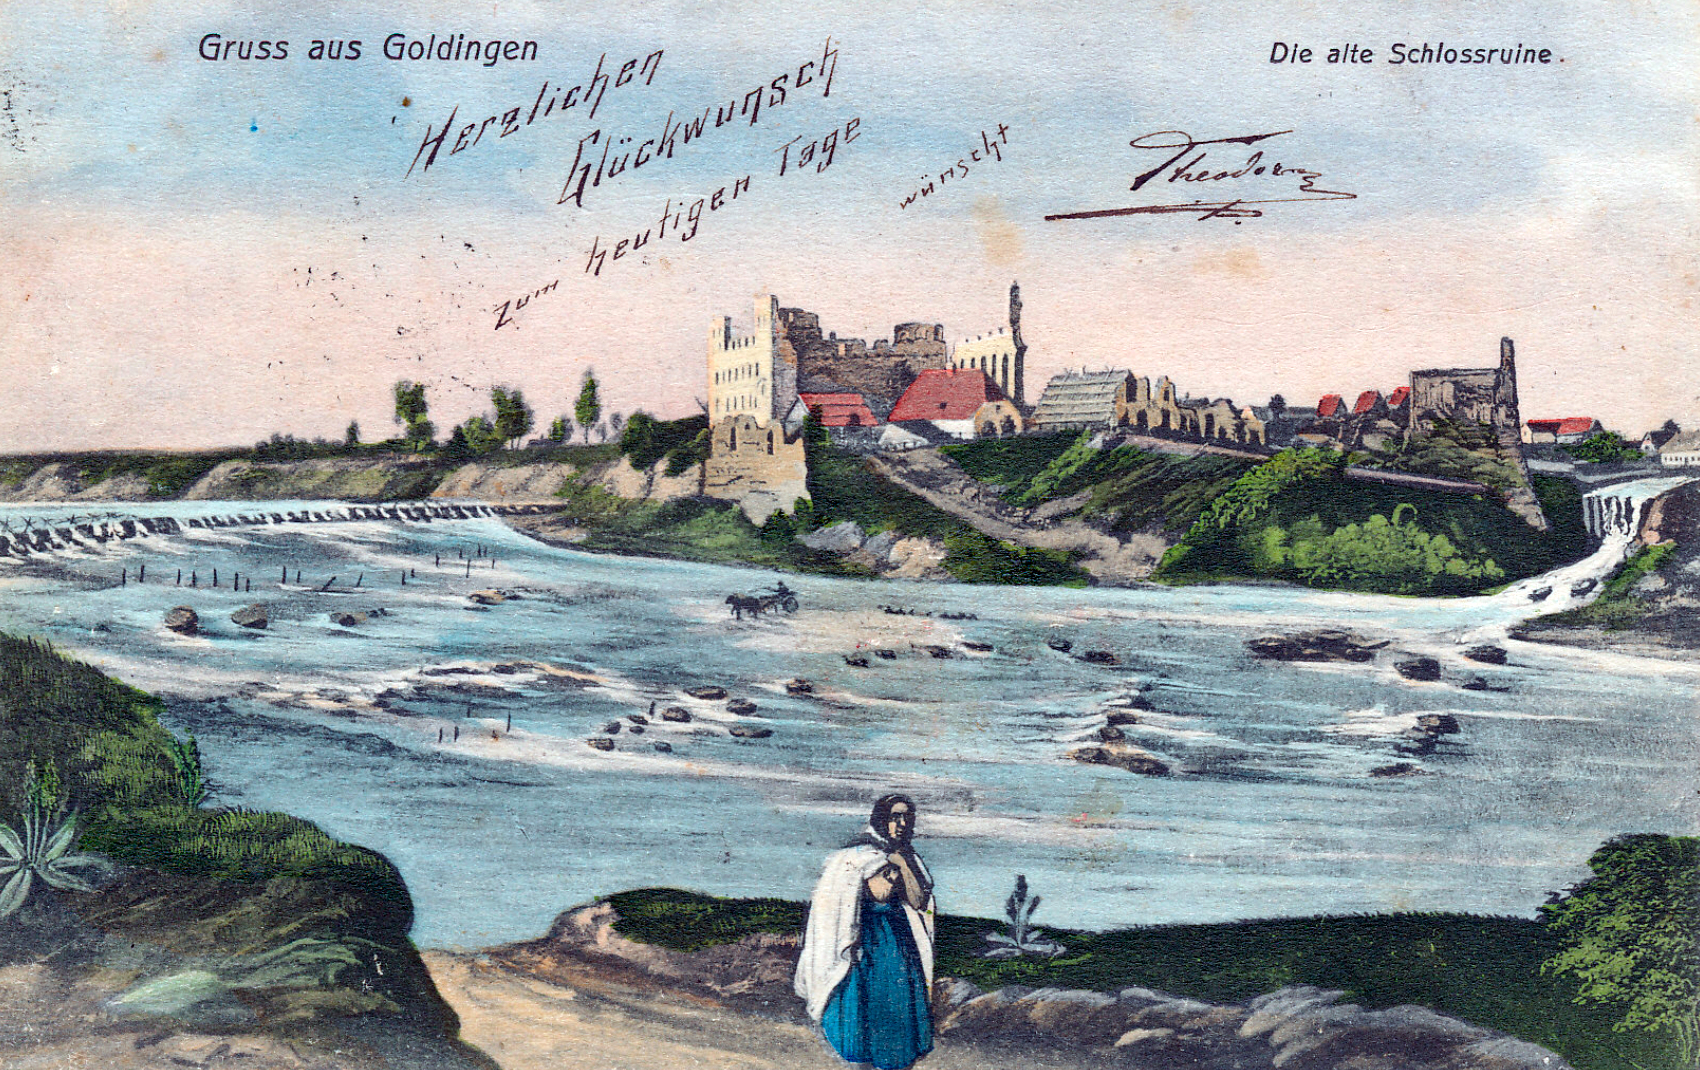 Gruss aus Goldingen
Die alte Schlossruine.
Herzlichen
Glückwunsch
zum heutigen Tage
wünscht
Theodor